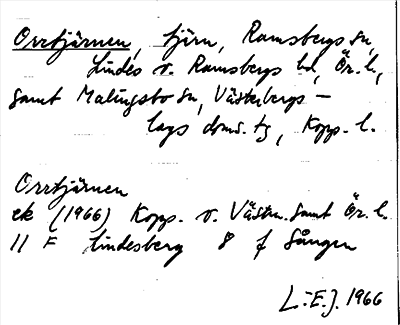 Orrtjärnen, tjärn, Ramsbergs sn,
Lindes o. Ramsbergs bd, Ör. l.,
samt Malingsbo sn, Västerbergs-
lags doms. tg, Kopp. l.
Orrtjärnen
ek (1966) Kopp. o. Västm. samt Ör. l.
11 F Lindesberg 8 f Gången
L.-E.J. 1966